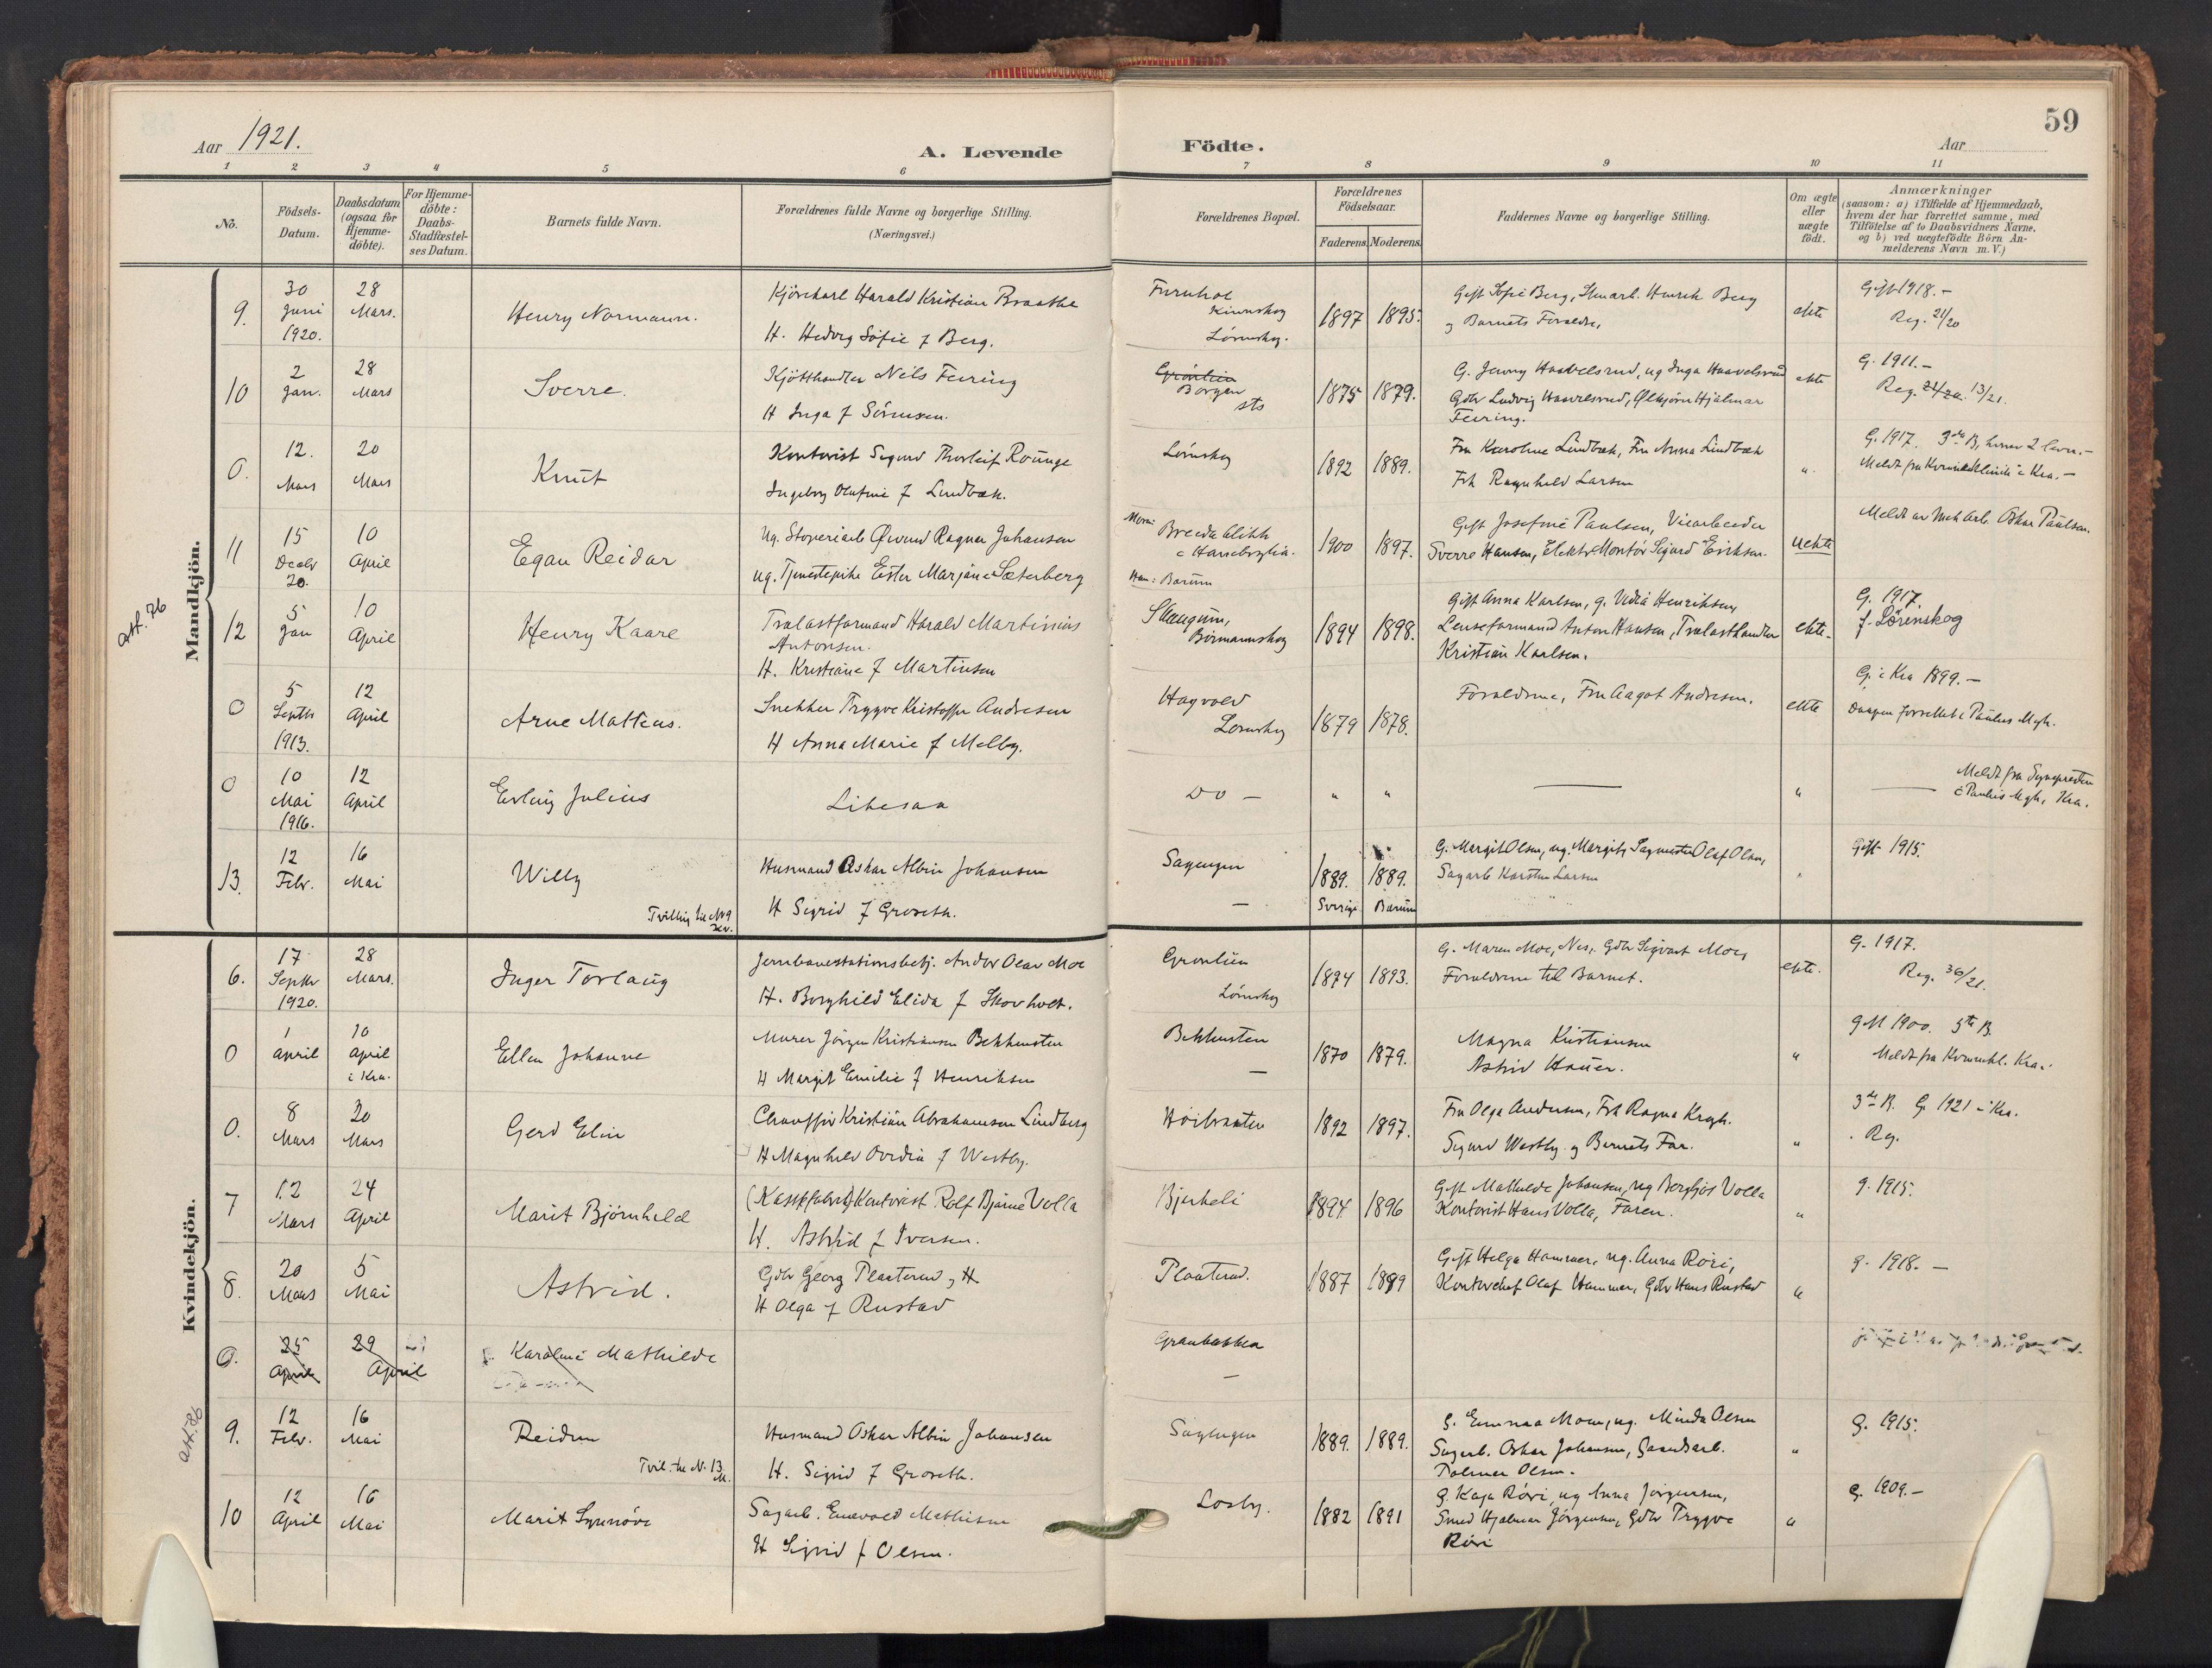 59
Aar 1921.
A. Levende
Födte.
Aar
1 2 3 4 5 6 7 8 9 10 11
No.
Födsels-
Datum.
Daabsdatum
(ogsaa for
Hjemme-
döbte).
For Hjemme-
döbte:
Daabs-
Stadfæstel-
ses Datum.
Barnets fulde Navn.
Forældrenes fulde Navne og borgerlige Stilling.
(Næringsvei.)
Forældrenes Bopæl.
Forældrenes
Födselsaar.
Faderens. Moderens.
Faddernes Navne og borgerlige Stilling.
Om ægte
eller
uægte
födt.
Anmærkninger
(saasom: a) i Tilfælde af Hjemmedaab,
hvem der har forrettet samme, med
Tilföielse af to Daabsvidners Navne.
og b) ved uægtefödte Börn An-
melderens Navn m. V.)
Mandkjön.
9.
30
Juni
1920.
28
Mars.
Henry Normann.
Kjörekarl Harald Kristian Braathe
H. Hedvig Sofie f Berg.
Furuhol
Lörenskog.
1897 1895.
Gift Sofie Berg, Stenarb. Henrik Berg
og Barnets Foreldre,
ekte
Gift 1918.-
Reg. 21/20
10
2
Jan.
28
Mars
Sverre.
Kjötthandler Nils Feiring
H Inga f Sörensen.
Grönlien
Borgen
sts
1875 1879.
G. Jenny Haavelsrud, ug Inga Haavelsrud
Gdbr Ludvig Haavelsrud, Ølkjører Hjalmar
Feiring.
ekte
G. 1911.-
Reg. 24/20. 13/21.
0.
12.
Mars
20
Mars
Knut
Kontorist Sigurd Thorleif Rounge
Ingeborg Olufine f Lindbæk.
Lörenskog
1892 1889.
Fru Karoline Lindbæk, Fru Anna Lindbæk
Frk Ragnhild Larsen
"
G. 1917. 3die B, herav 2 lever.-
Meldt fra Kvindeklinik i Kra.-
11
15
Decbr
20.
10
April
Egan Reidar
Ug. Stoperiarb Øivind Ragnar Johansen
ug. Tjenestepike Ester Marjane Sæterberg
Moren: Breidablikk
i Haneborglia.
Han: Bærum
1900 1897.
Gift Josefine Paulsen, Veiarbeider
Sverre Hansen, Elektr. Montör Sigurd Eriksen.
Uekte
Meldt av Mek Arb. Oskar Paulsen.
att. 76
12
5
Jan
10
April
Henry Kaare
Trælastformand Harald Martinius
Antonsen.
H. Kristiane f Martinsen
1894 1898.
Gift Anna Karlsen, g. Vidia Henriksen,
Lenseformand Anton Hansen, Trælasthandler
Kristian Karlsen.
ekte.
G. 1917.
f. Lörenskog
0
5
Septbr
1913.
12
April
Arne Matteus.
Snekker Trygve Kristoffer Andresen
H Anna Marie f Melby.
Hagvold
Lörenskog
1879 1878.
Foreldrene, Fru Aagot Andresen.
ekte
G. i Kra 1899.-
Daapen forrettet i Paulus Mgh.
0
10
Mai
1916.
12
April
Erling Julius
Likesaa
Do -
" "
"
Meldt fra Sogneprestn
i Paulus Mgh, Kra.
13.
12
Febr.
16
Mai
Willy
Tvilling til No 9
Kv.
Husmand Oskar Albin Johansen
H Sigrid f Groseth.
Sagengen
-
1889. 1889.
Sverige Bærum
G. Margit Olsen, ug. Margit, Sagmester Olaf Olsen,
Sagarb Karsten Larsen
Gift 1915.
Kvindekjön.
6.
17
Septbr
1920.
28
Mars.
Inger Torlaug
Jernbanestationsbetj. Andor Olav Moe
H. Borghild Elida f Skovholt.
Grönlien
Lörenskog
1894 1893.
G. Maren Moe, Nes, Gdbr Sigvart Moe,
Foreldrene til Barnet.
ekte.
G. 1917.
Reg. 36/21.
0
1
April
10
April
i Kra.
Ellen Johanne
Murer Jörgen Kristiansen Bekkensten
H Margit Emilie f Henriksen
Bekkensten
-
1870 1879.
Magna Kristiansen
Astrid Hauer.
"
gift 1900. 5te B.
Meldt fra Kvindekl. Kra.
0.
8
Mars
20
Mars
Gerd Elin
Chaufför Kristian Abrahamsen Lindberg
H Magnhild Ovidia f Westby.
Höibraaten
1892 1897.
Fru Olga Andersen, Frk Ragna Krogh.
Sigurd Westby og Barnets Far.
"
3die B. G 1921 i Kra.
. Reg.
7
12
Mars
24
April
Marit Björnhild
Kontorist Rolf Bjarne Volla
H. Astrid f Iversen.
Bjerkeli
1894 1896
Gift Mathilde Johansen, ug Bergljot Volla
Kontorist Hans Volla, Faren.
"
g. 1915.
8.
20
Mars
5
Mai
Astrid.
Gdbr Georg Plaaterud og H
H Olga f Rustad
Plaaterud.
1887 1889
Gift Helga Hammer, ug. Anna Röri,
Kontorchef Olaf Hammer, Gdbr Hans Rustad
"
g. 1918. -
0.
25
April
29
April
Karoline Mathilde
Granbakken
-
att. 86
9.
12
Febr.
16
Mai
Reidun
Tvil. til N. 13
M.
Husmand Oskar Albin Johansen
H. Sigrid f Groseth.
Sagengen
1889. 1889.
G. Emma Moen, ug. Minda Olsen
Sagarb. Oskar Johansen, Gaardsarb.
Palmer Olsen.
"
G. 1915.
10
12
April
16
Mai
Marit Synnöve
Sagarb. Enevold Mathisen
H Sigrid f Olsen.
Losby.
1882 1891
G. Kaja Röri, ug Anna Jörgensen,
Smed Hjalmar Jörgensen, Gdbr Trygve
Röri
"
G. 1909.-